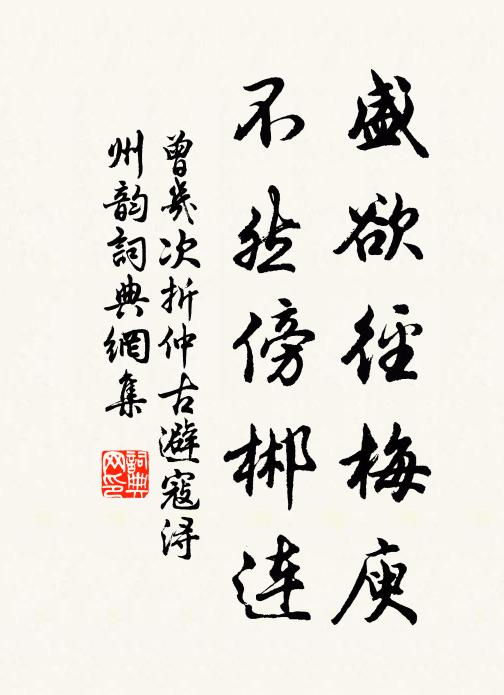 盛欲徑梅庾
不然傍郴連
曾幾次折仲古避寇浔
州韵詞典網集
詞典網印